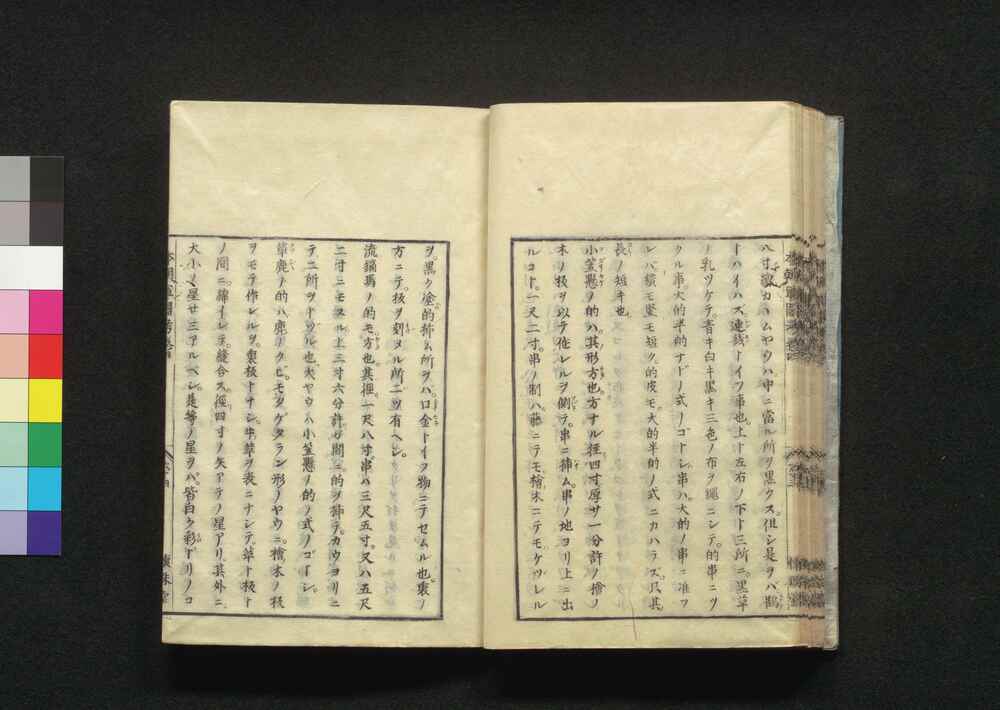 八寸、ハムヤウハ中ニ當ル所ヲ黒クス。但シ是ヲハ鶴
トハイハズ。連銭トイフ事也。上ト左右ノ下ト三所ニ。黒革
ノ乳ツケテ。青キ白キ黒キ三色ノ布ヲ縄ニシテ。的串ニツ
クル事。大的半的ナドノ式ノゴトシ。串ハ大的ノ串ニ准フ
レバ横モ竪モ短ク。的皮モ。大的半的ノ式ニカハラズ。只其
長ノ短キ也。
小笠懸ノ的ハ。其形方也。方ナル徑四寸厚サ一分許ノ檜ノ
木ノ板ヲ以テ作レルヲ側ラ。串ニ挿ム。串ノ地ヨリ上ニ出
ルコト。一尺二寸。串ノ制ハ。藤ニテモ檜木ニテモケヅレル
ヲ。黒ク塗。的挿ム所ヲハ。口金トイフ物ニテセムル也。裏ノ
方ニテ。板ヲ刻メル所二ツ有ヘシ。
流鏑馬ノ的モ。方也。其徑一尺八寸。串ハ三尺五寸。又ハ五尺
二寸ニモスル。上三寸六分許ヲ閒ニ的ヲ挿テ。カウヨリニ
テ二所ヲトヅル也。大ヤウハ小笠懸ノ的ノ式ノゴトシ。
草鹿ノ的ハ。鹿ノクビモタゲタラン形ノヤウニ。檜木ノ板
ヲモテ作レルヲ。裏板トナシ。牛革ヲ表ニナシテ。革ト板ト
ノ閒ニ。綿イレテ縫合ス。徑四寸ノ矢アテノ星アリ。其外ニ
大小ノ星廿三アルベシ。是等ノ星ヲバ。皆白ク彩ドリノコ